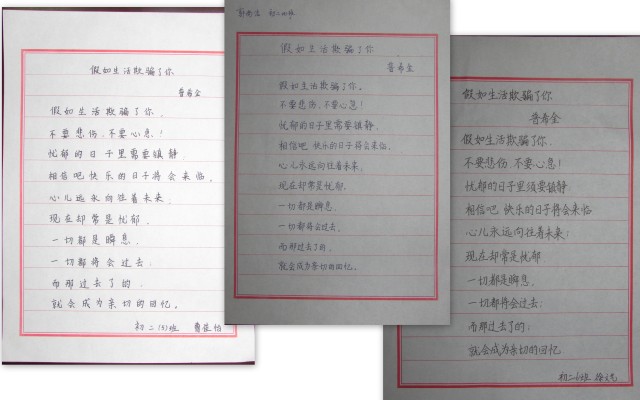 假如生活欺骗了你
普希金
假如生活欺骗了你.
不要悲伤.不要心急!
忧郁的日子里需要镇静.
相信吧快乐的日子将会来临.
心儿永远向往着未来.
现在却常是忧郁.
一切都是瞬息.
一切都将会过去.
而那过去了的.
就会成为亲切的回忆。
初二(5)班
初二四班
假如生活欺骗了你
普希金
假如生活欺骗了你,
不要悲伤,不要心急!
忧郁的日子里需要镇静.
相信吧 快乐的日子将会来临.
心儿永远向往着未来.
现在却常是忧郁.
一切都是瞬息.
一切都将会过去.
而那过去了的.
就会成为亲切的回忆。
假如生活欺骗了你
普希金
假如生活欺骗了你.
不要悲伤.不要心急!
忧郁的日子里须要镇静.
相信吧 快乐的日子将会来临
心儿永远向往着未来;
现在却常是忧郁
一切都是瞬息.
一切都将会过去;
而那过去了的;
就会成为亲切的回忆
初二6班